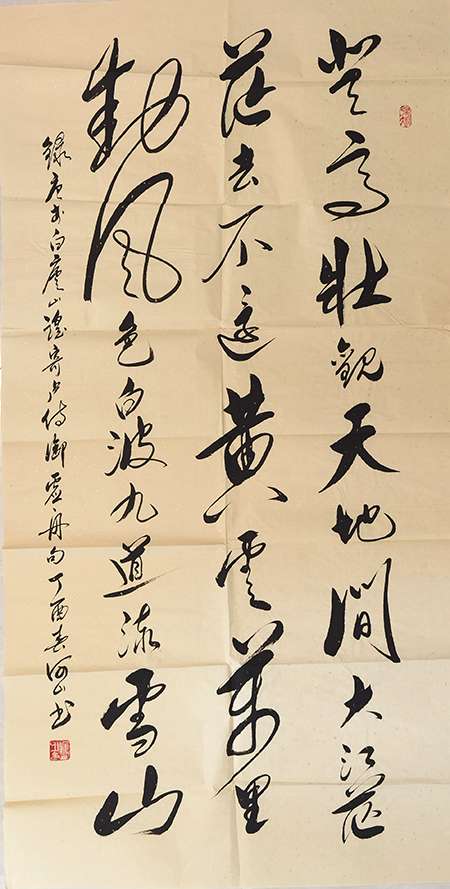 登高壯觀天地間大江茫
茫去不還黃雲萬里
動風色白波九道流雪山
錄唐李白廬山謠寄盧侍御虛舟句丁酉春河山書